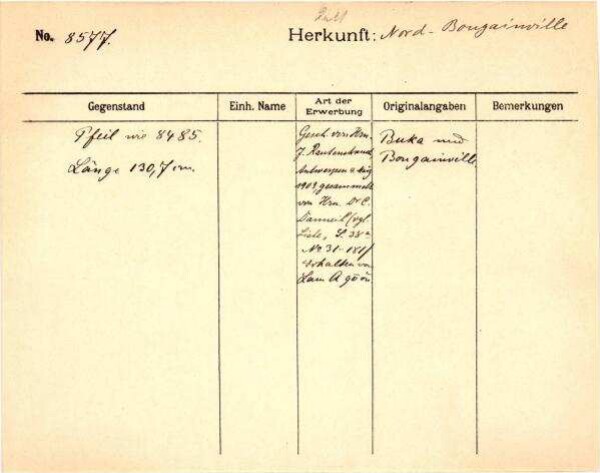 No. 8577.
Herkunft: Nord-Bougainville
Gegenstand
Einh. Name
Art der Erwerbung
Originalangaben
Bemerkungen
Pfeil wie 8485.
Länge 130,7 cm.
Gesch. von Hrn.
J. Rautenstrauch
Antwerpen
1913, gesammelt
von Hrn Dr C.
(vgl.
Liste, S. 38a
No 31-181)
Erhalten von
Buka und
Bougainville